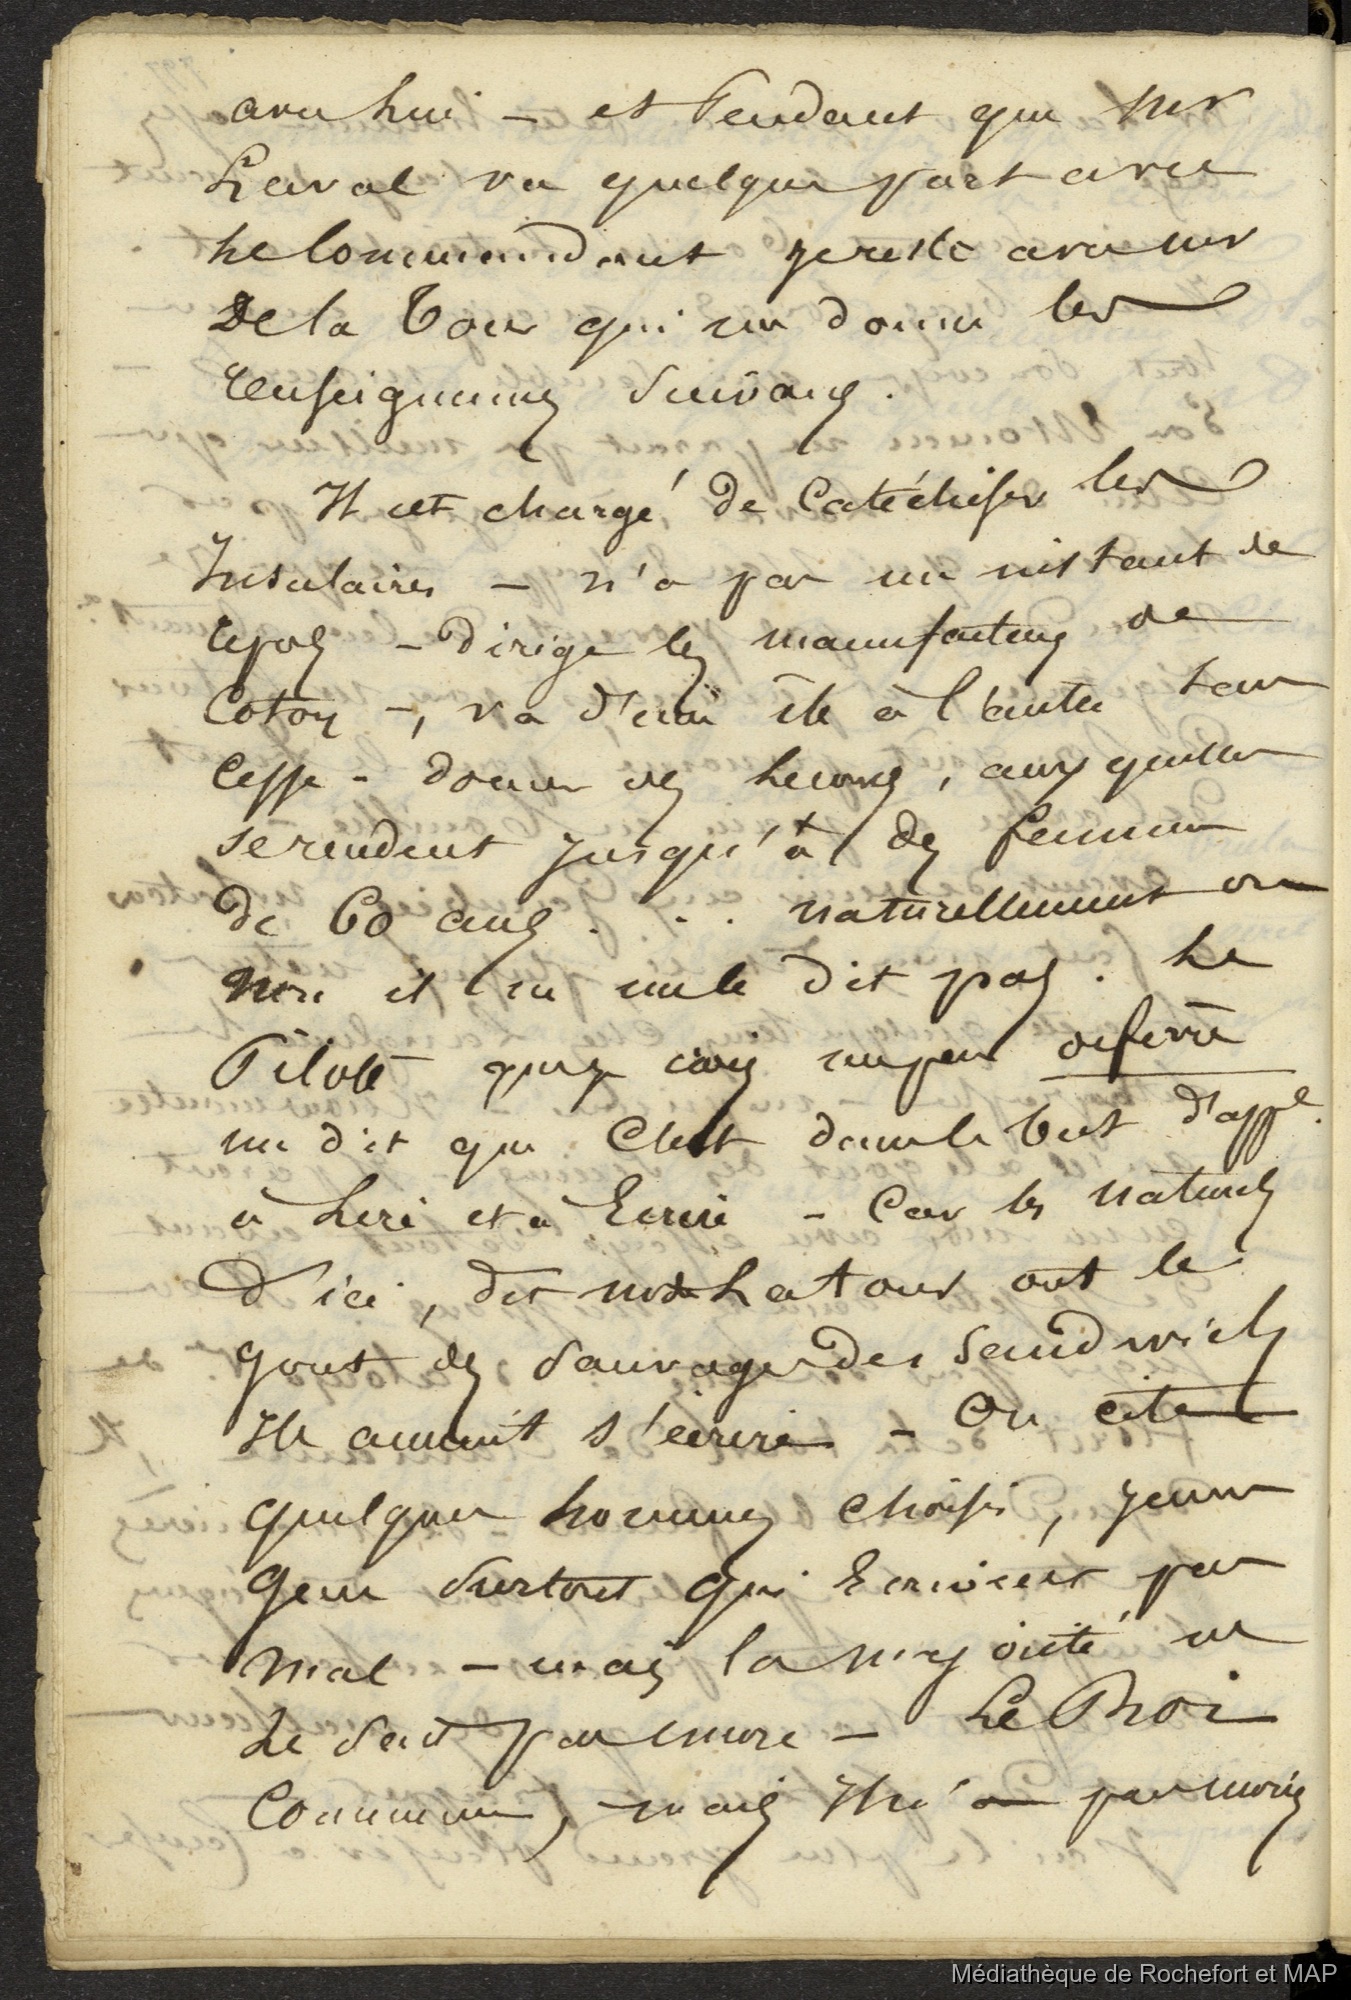 avec lui - et Pendant que Mr
Laval va quelque part avec
Le Commandant je reste avec mr
De la Tour qui me donne les
renseignemens suivans.
Il est chargé de Catéchiser les
Insulaires - n'a pas un instant de
repos - Dirige les manufactures de
Coton -, va d'une île à l'autre sans
Cesse - donner des Leçons, auxquelles
se rendent jusqu'à des femmes
de 60 ans . . . naturellement ou
non il ne me le dit pas. Le
Pilote que je crois un peu
me dit que C'est dans le but d'appr.
à Lire et à Ecrire - Car les Naturels
D'ici, dit mr De Latour ont le
gout des Sauvages Des Sandwich
Ils aiment s'écrire - On cite
quelques hommes choisis, jeunes
gens surtout qui Ecrivent pas
mal - mais la majorité ne
Le sait pas encore - Le Roi
Commence, mais Il n'a pas moins
Médiathèque de Rochefort et MAP